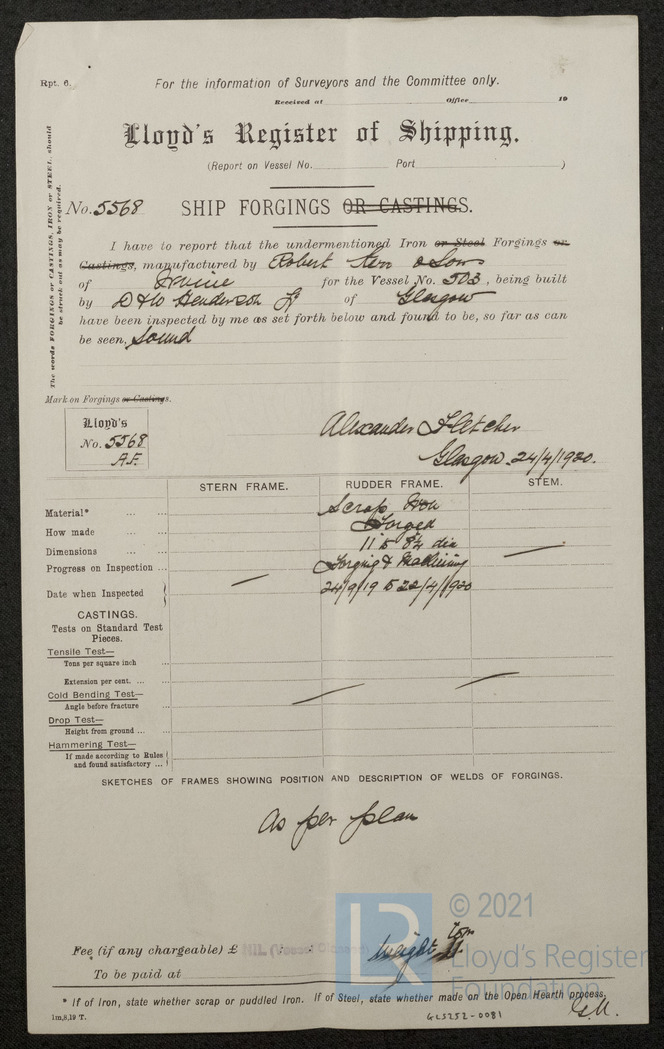 Rpt. 6.
For the information of Surveyors and the Committee only.
Received at Office 19
Lloyd's Register of Shipping.
(Report on Vessel No. Port )
The words FORGINGS or CASTINGS, IRON or STEEL, should be struck out as may be required.
No. 5568 SHIP FORGINGS OR CASTINGS.
I have to report that the undermentioned Iron or Steel Forgings or
Castings, manufactured by Robert Kerr & Sons
of Irvine for the Vessel No. 503, being built
by D & W Henderson of Glasgow
have been inspected by me as set forth below and found to be, so far as can
be seen, Sound
Mark on Forgings or Castings.
Lloyd's
No. 5568
A.F.
Alexander Fletcher
Glasgow. 24/4/1920.
STERN FRAME. RUDDER FRAME. STEM.
Material* ... ... Scrap Iron
How made ... ... Forged
Dimensions ... ... 11" to 8¼ dia
Progress on Inspection ... Forging & Machining
Date when Inspected 24/9/19 to 22/4/1920
CASTINGS.
Tests on Standard Test
Pieces.
Tensile Test—
Tons per square inch ...
Extension per cent. ... ...
Cold Bending Test—
Angle before fracture ...
Drop Test—
Height from ground ... ...
Hammering Test—
If made according to Rules
and found satisfactory ...
SKETCHES OF FRAMES SHOWING POSITION AND DESCRIPTION OF WELDS OF FORGINGS.
As per plan
© 2021
Lloyd's Register
Foundation
LR
Fee (if any chargeable) £ : : NIL
Weight
To be paid at
* If of Iron, state whether scrap or puddled Iron. If of Steel, state whether made on the Open Hearth process.
1m,8,19 T.
GLS252-0081